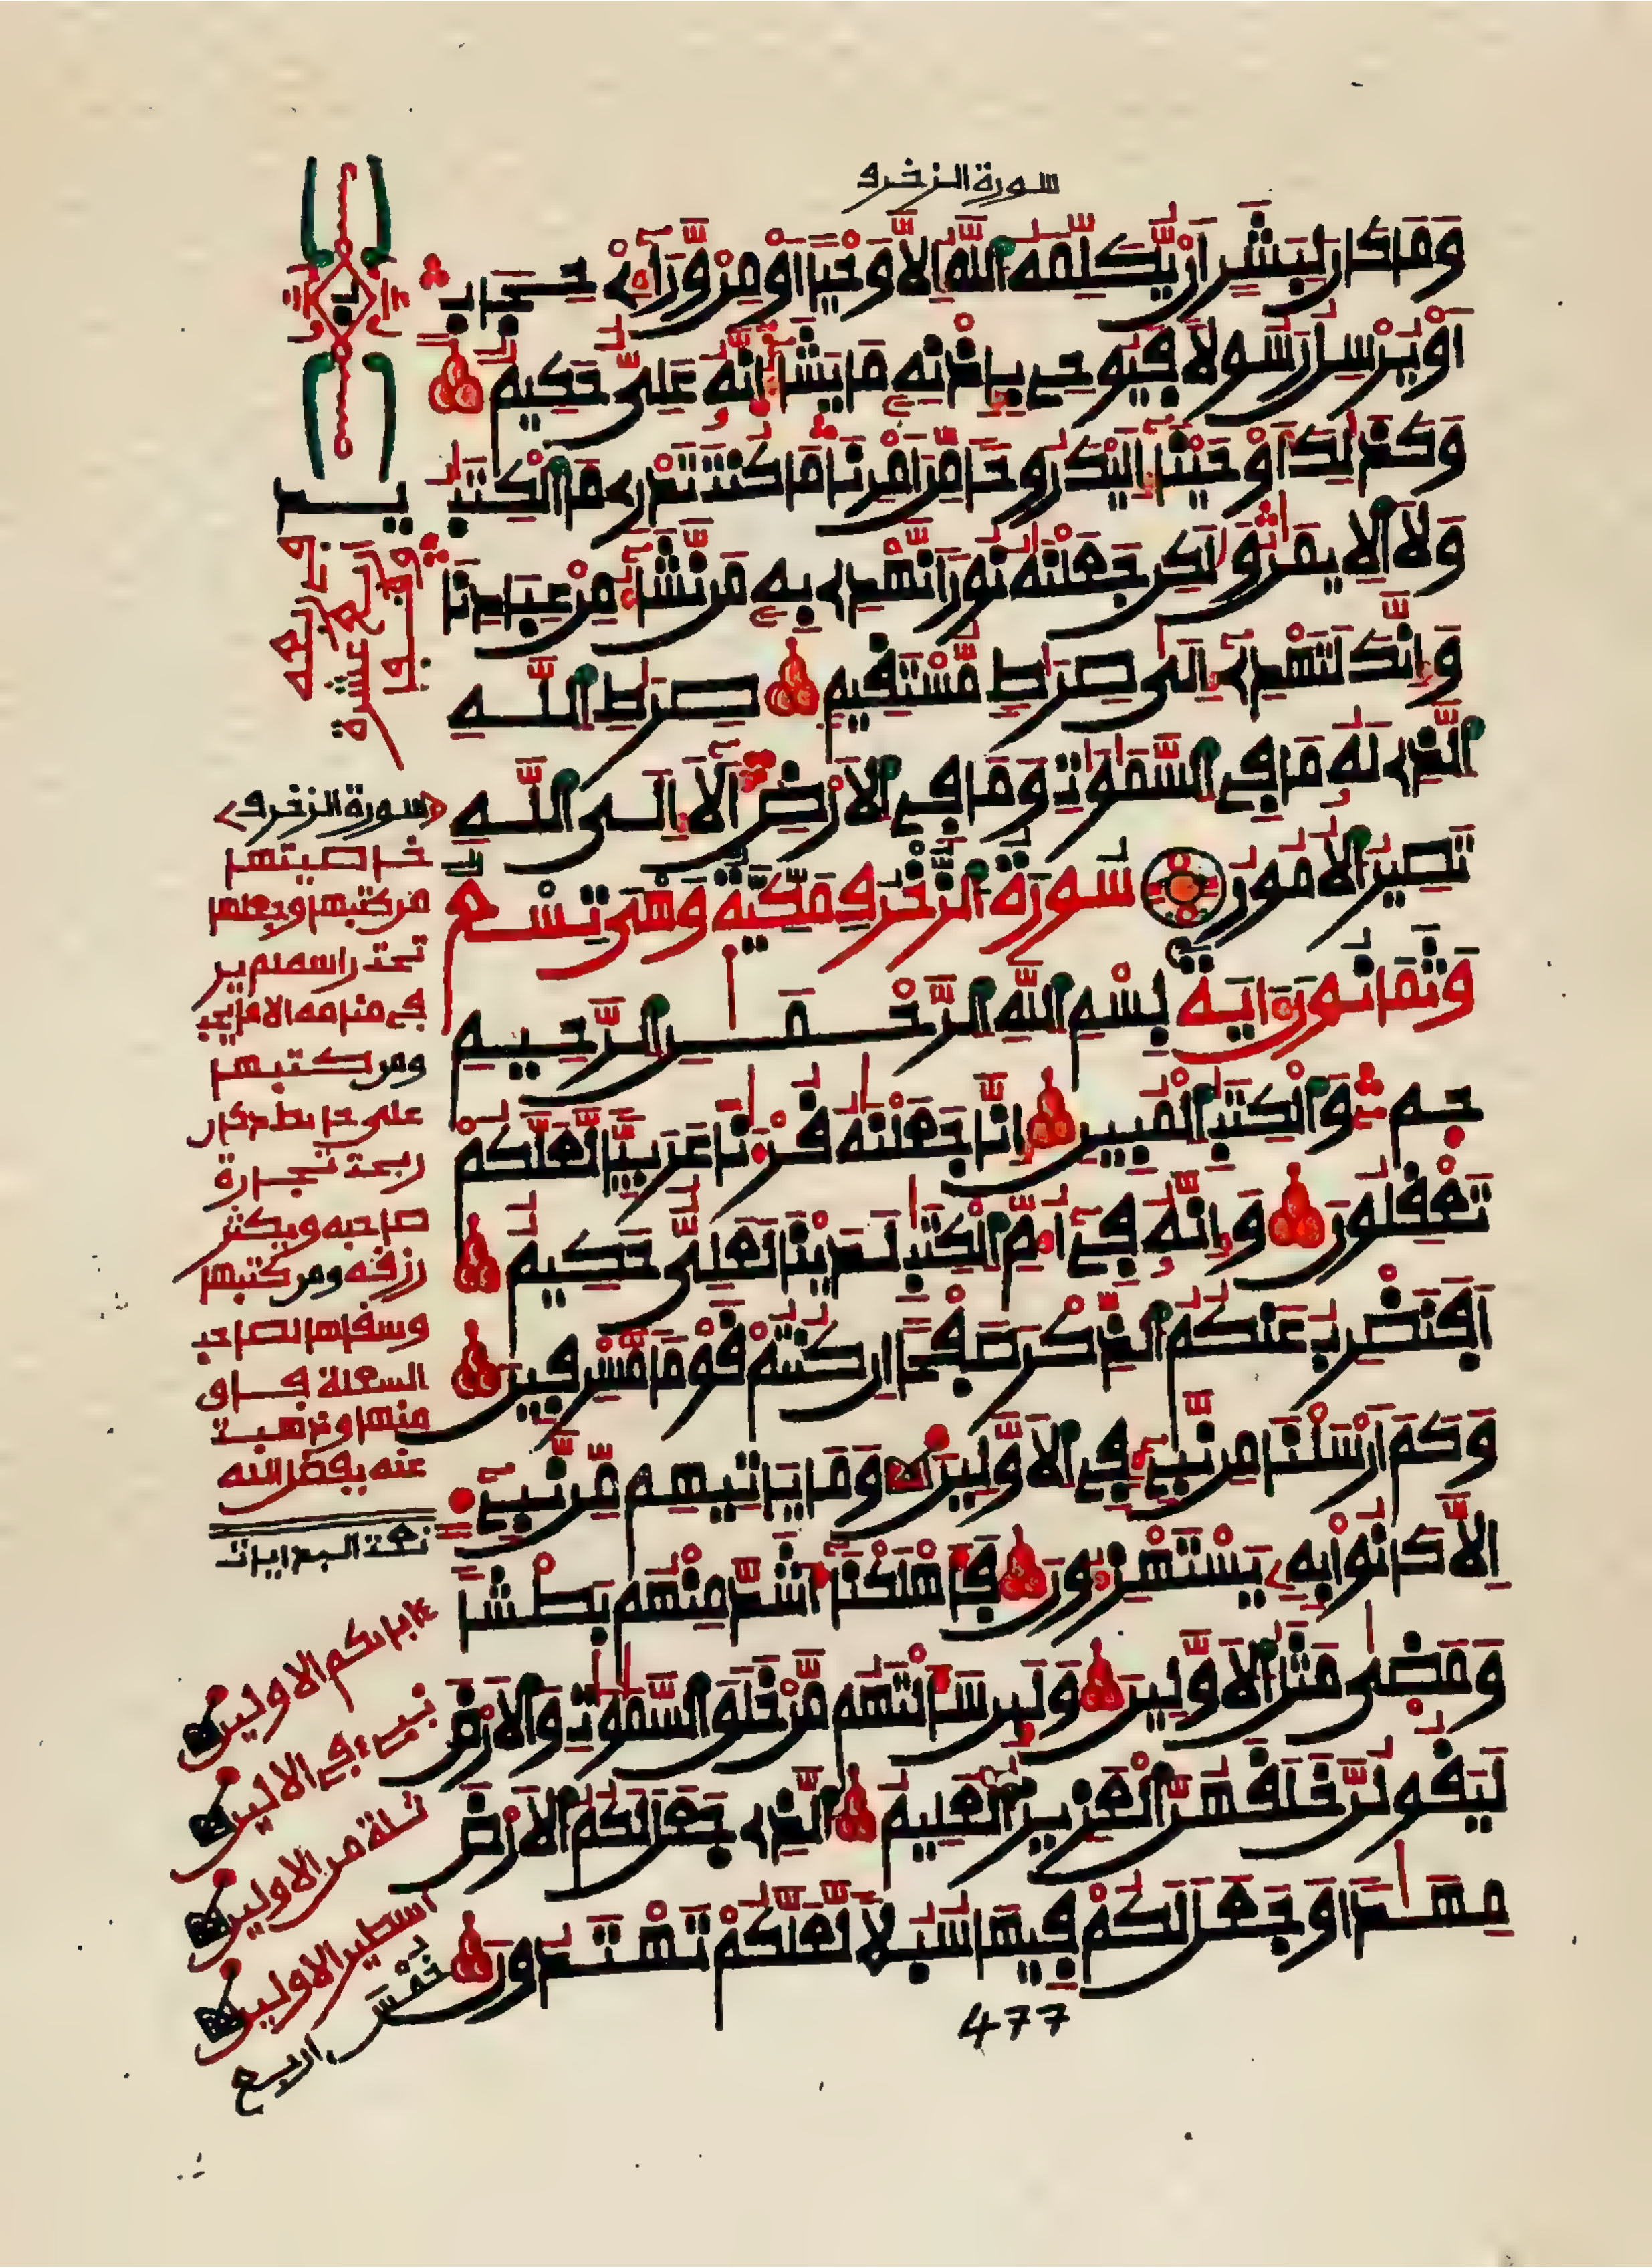 سورة الزخرف
وَمَا كَانَ لِبَشَرٍ أَنْ يُّكَلِّمَهُ اللَّهُ إِلَّا وَحْيًا أَوْ مِنْ وَّرَآءِ حِجَابٍ
أَوْ يُرْسِلُ رَسُولًا فَيُوحِي بِإِذْنِهِ مَا يَشَآءُ إِنَّهُ عَلِيٌّ حَكِيمٌ
وَكَذَلِكَ أَوْحَيْنَآ إِلَيْكَ رُوحًا مِّنْ أَمْرِنَا مَا كُنْتَ تَدْرِي مَا الْكِتَبُ
وَلَا الْإِيمَنُ وَلَكِن جَعَلْنَهُ نُورًا نَّهْدِي بِهِ مَن نَّشَآءُ مِنْ عِبَادِنَا
وَإِنَّكَ لَتَهْدِي إِلَى صِرَطٍ مُّسْتَقِيمٍ صِرَطِ اللَّهِ
الَّذِي لَهُ مَا فِي السَّمَوَتِ وَمَا فِي الْأَرْضِ أَلَا إِلَى اللَّهِ
تَصِيرُ الْأُمُورُ سُورَةُ الزُّخْرُفِ مَكِّيَّةٌ وَهْيَ تِسْعٌ
وَثَمَانُونَ ءَايَةً بِسْمِ اللَّهِ الرَّحْمَنِ الرَّحِيمِ
حم وَالْكِتَبِ الْمُبِينِ إِنَّا جَعَلْنَهُ قُرْءَنًا عَرَبِيًّا لَّعَلَّكُمْ
تَعْقِلُونَ وَإِنَّهُ فِي أُمِّ الْكِتَبِ لَدَيْنَا لَعَلِيٌّ حَكِيمٌ
أَفَنَضْرِبُ عَنكُمُ الذِّكْرَ صَفْحًا إِن كُنتُمْ قَوْمًا مُّسْرِفِينَ
وَكَمْ أَرْسَلْنَا مِن نَّبِيءٍ فِي الْأَوَّلِينَ وَمَا يَاتِيهِم مِّن نَّبِيءٍ
إِلَّا كَانُوا بِهِ يَسْتَهْزِءُونَ فَأَهْلَكْنَآ أَشَدَّ مِنْهُم بَطْشًا
وَمَضَى مَثَلُ الْأَوَّلِينَ وَلَئِن سَأَلْتَهُم مَّنْ خَلَقَ السَّمَوَتِ وَالْأَرْضَ
لَيَقُولُنَّ خَلَقَهُنَّ الْعَزِيزُ الْعَلِيمُ الَّذِي جَعَلَ لَكُمُ الْأَرْضَ
مِهَدًا وَجَعَلَ لَكُمْ فِيهَا سُبُلًا لَّعَلَّكُمْ تَهْتَدُونَ
477
سورة الزخرف
خاصيتها
من كتبها وجعلها
تحت راسه لم ير
في منامه الا ما يحب
ومن كتبها
على حايط دكان
ربحت تجارة
صاحبه ويكثر
رزقه ومن كتبها
وسقاها لصاحب
السعلة فاق
منها وذهبت
عنه بفضل الله
ءابائكم الاولين
نبيء في الاولين
ثلة من الاولين
اسطير الاولين